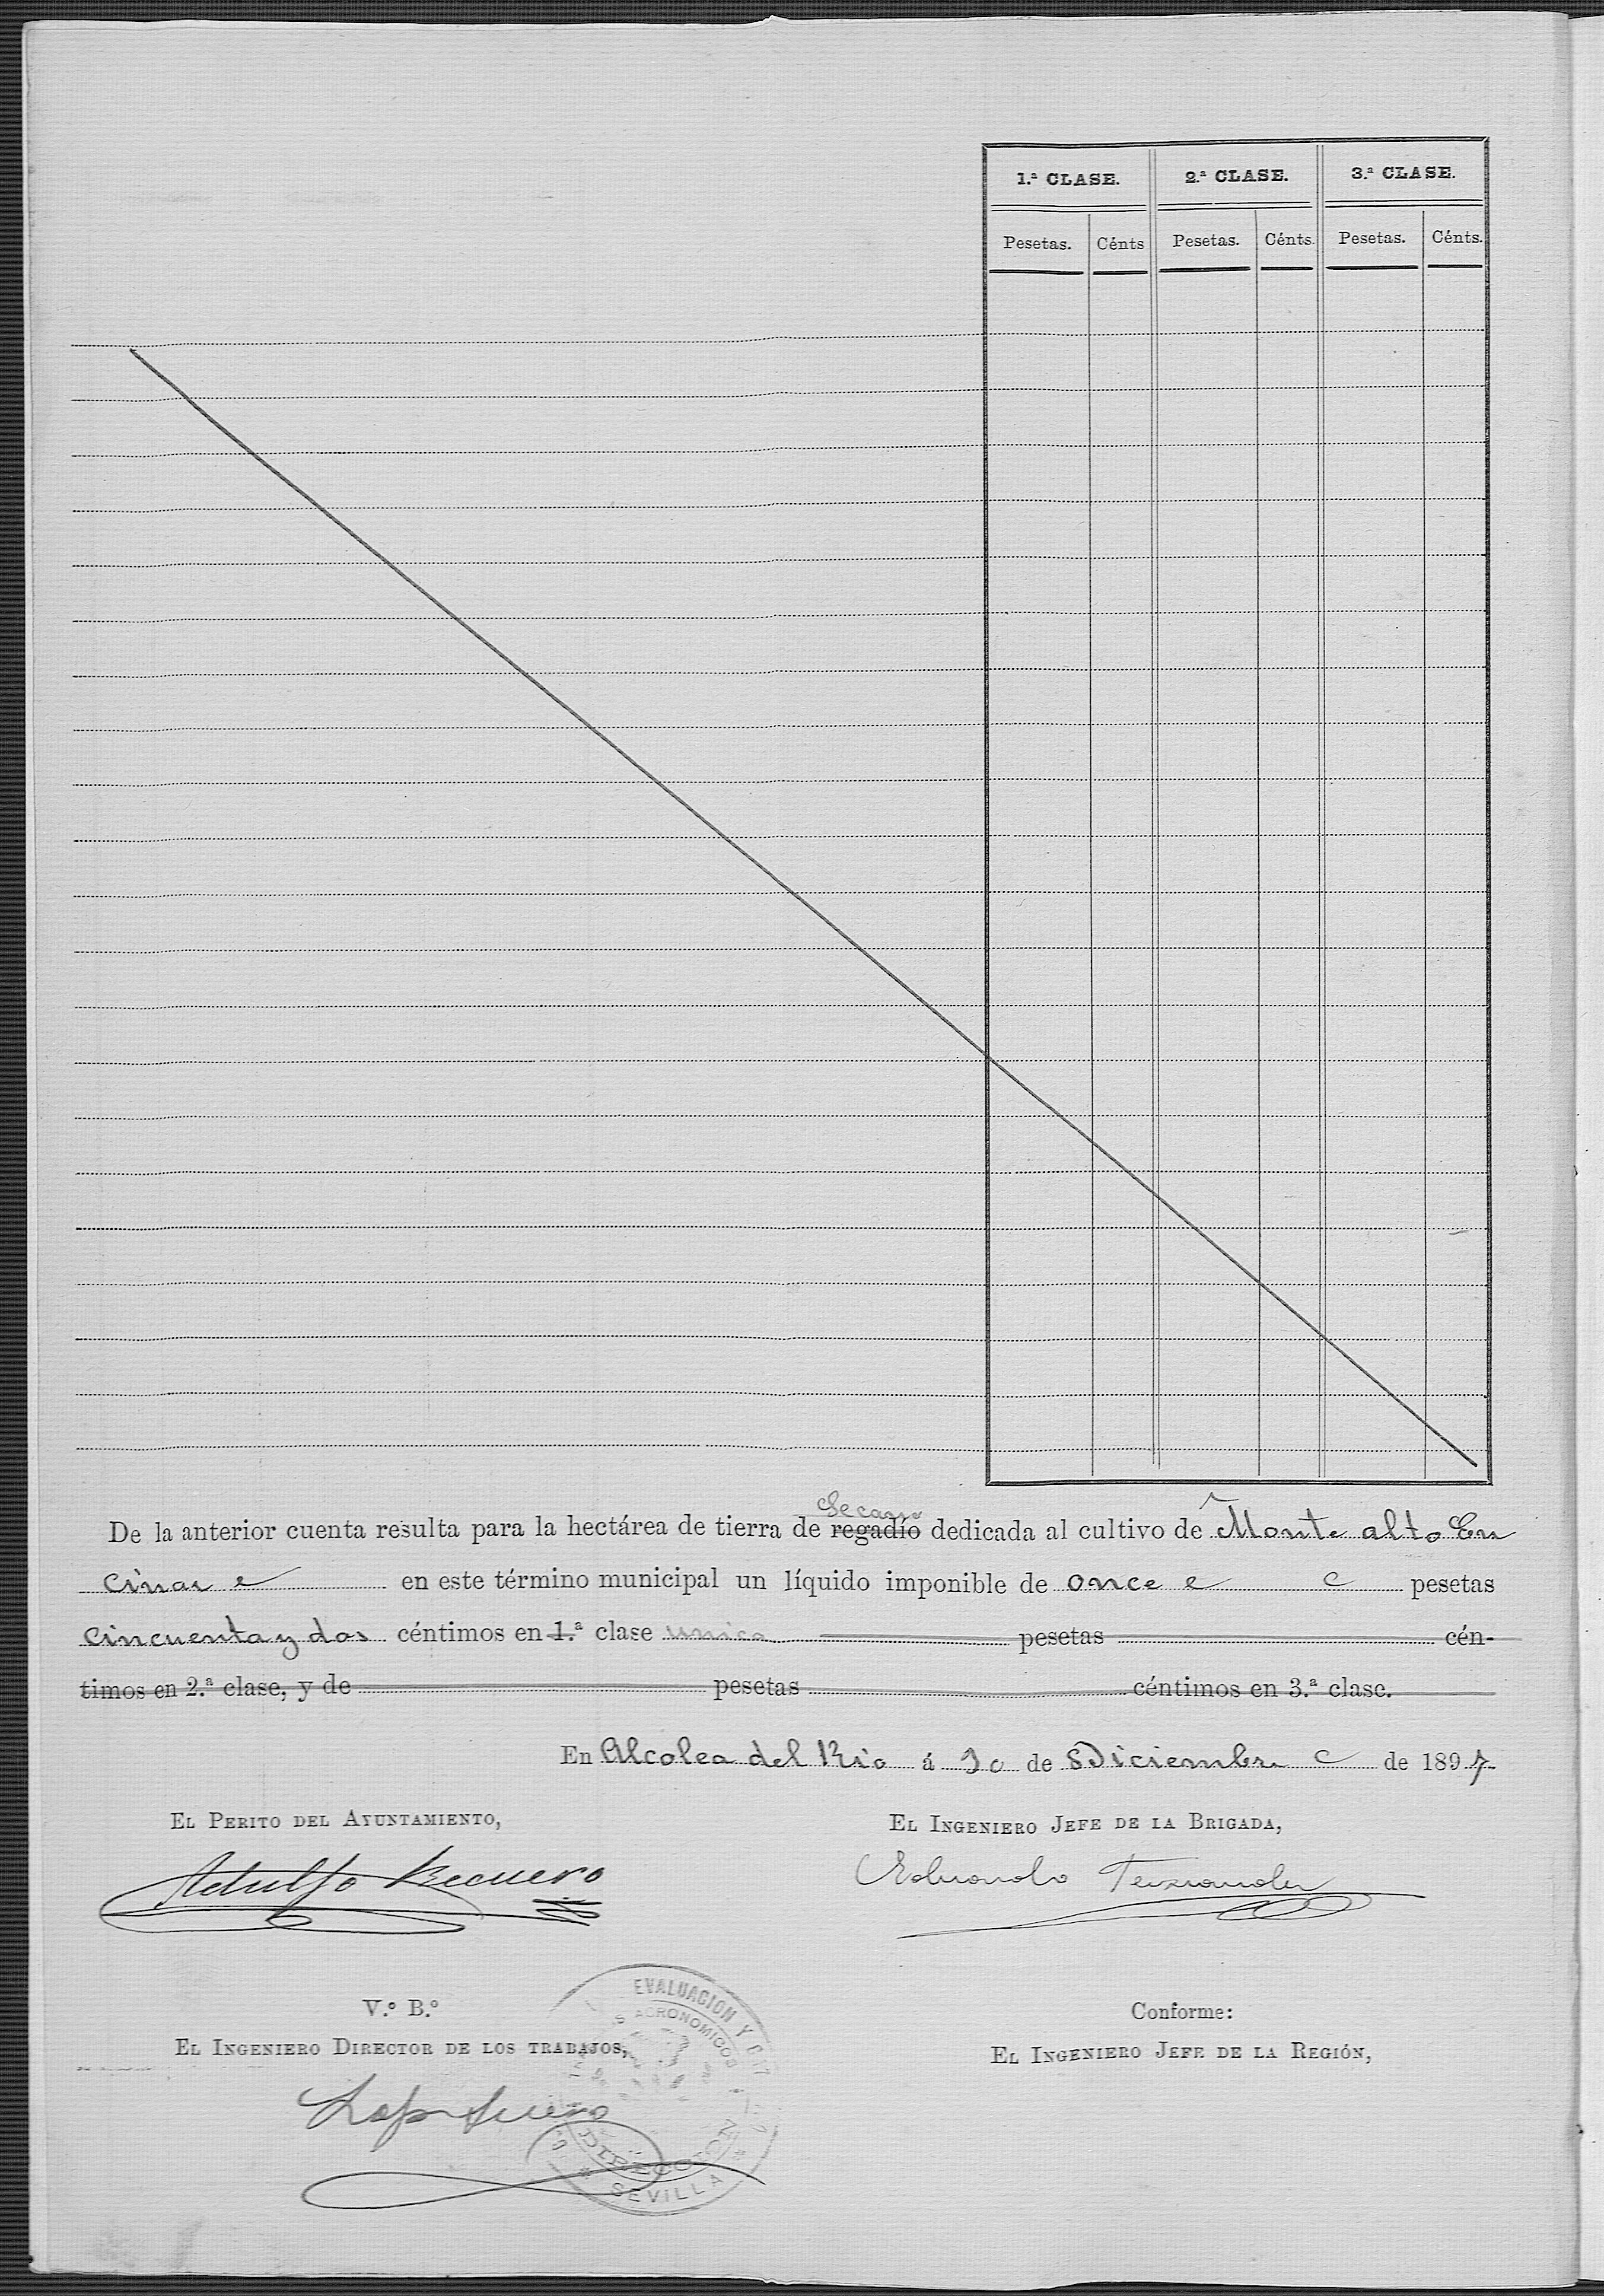 1.ª CLASE. 2.ª CLASE. 3.ª CLASE.
Pesetas. Cénts Pesetas. Cénts. Pesetas. Cénts.
Secano
De la anterior cuenta resulta para la hectárea de tierra de regadío dedicada al cultivo de Monte alto En
cinar en este término municipal un líquido imponible de once pesetas
cincuenta y dos céntimos en 1.ª clase unica pesetas cén-
timos en 2.ª clase, y de pesetas céntimos en 3.ª clase.
En Alcolea del Rio á de Diciembre de 1897
EL PERITO DEL AYUNTAMIENTO, EL INGENIERO JEFE DE LA BRIGADA,
Adulfo Recuero Eduardo Fernandez
EVALUACION Y
AGRONOMICOS
V.º B.º Conforme:
EL INGENIERO DIRECTOR DE LOS TRABAJOS, EL INGENIERO JEFE DE LA REGIÓN,
DIRECCION
SEVILLA